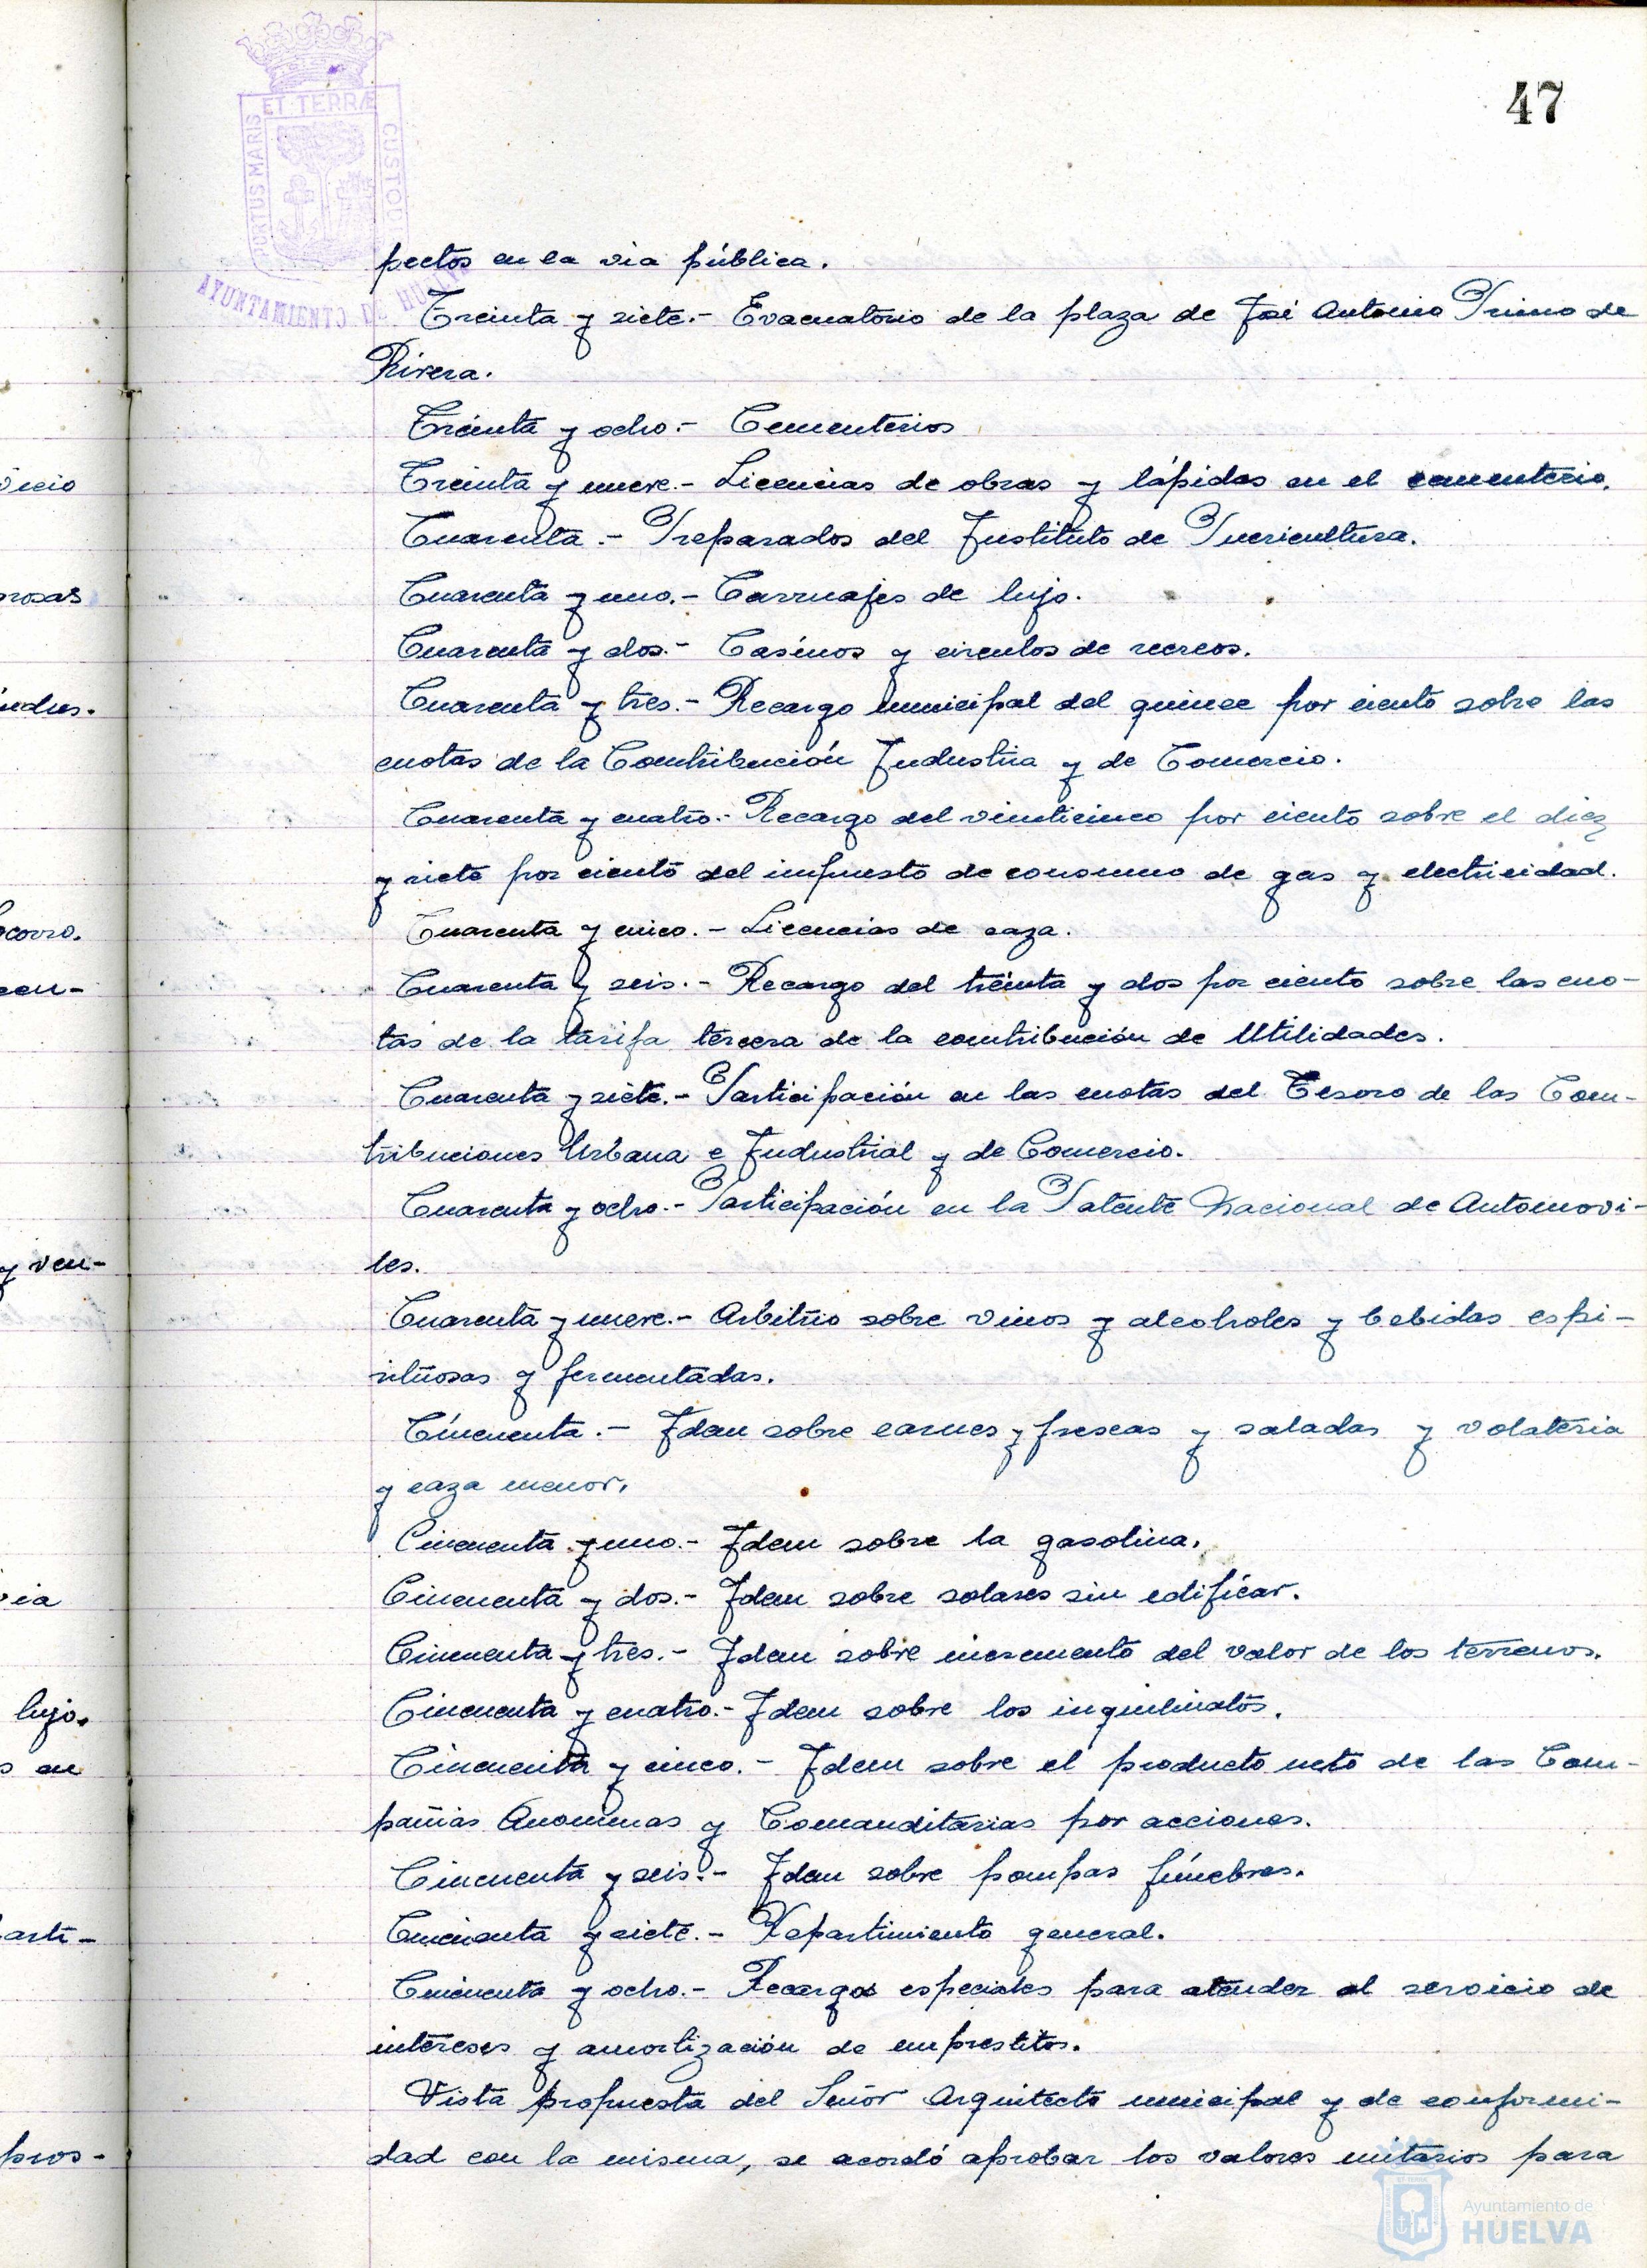 47
PORTUS MARIS ET TERRÆ CUSTOD
AYUNTAMIENTO DE HU
pectos en la via pública.
Treinta y siete.- Evacuatorio de la plaza de José Antonio Primo de
Rivera.
Treinta y ocho.- Cementerios
Treinta y nueve.- Licencias de obras y lápidas en el cementerio.
Cuarenta.- Preparados del Instituto de Puericultura.
Cuarenta y uno.- Carruajes de lujo.
Cuarenta y dos.- Casinos y circulos de recreos.
Cuarenta y tres.- Recargo municipal del quince por ciento sobre las
cuotas de la Contribución Industria y de Comercio.
Cuarenta y cuatro.- Recargo del vinticinco por ciento sobre el diez
y siete por ciento del impuesto de consumo de gas y electricidad.
Cuarenta y cinco.- Licencias de caza.
Cuarenta y seis.- Recargo del treinta y dos por ciento sobre las cuo-
tas de la tarifa tercera de la contribución de Utilidades.
Cuarenta y siete.- Participación en las cuotas del Tesoro de las Con-
tribuciones Urbana e Industrial y de Comercio.
Cuarenta y ocho.- Participación en la Patente Nacional de Automovi-
les.
Cuarenta y nueve.- Arbitrio sobre vinos y alcoholes y bebidas espi-
rituosas y fermentadas.
Cincuenta.- Idem sobre carnes y frescas y saladas y volateria
y caza menor.
Cincuenta y uno.- Idem sobre la gasolina.
Cincuenta y dos.- Idem sobre solares sin edificar.
Cincuenta y tres.- Idem sobre incremento del valor de los terrenos.
Cincuenta y cuatro.- Idem sobre los inquilinatos.
Cincuenta y cinco.- Idem sobre el producto neto de las Com-
pañias Anonimas y Comanditarias por acciones.
Cincuenta y seis.- Idem sobre pompas fúnebres.
Cincuenta y siete.- Repartimiento general.
Cincuenta y ocho.- Recargos especiales para atender al servicio de
intereses y amortización de emprestitos.
Vista propuesta del Señor Arquitecto municipal y de conformi-
dad con la misma, se acordó aprobar los valores unitarios para
Ayuntamiento de
HUELVA